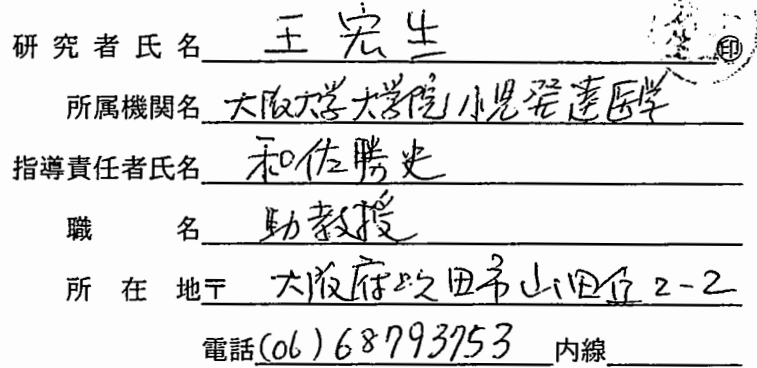 研究者氏名 王宏生 印
所属機関名 大阪大学大学院小児発達医学
指導責任者氏名 和佐勝史
職名 助教授
所在地〒 大阪府吹田市山田丘2-2
電話(06)68793753 内線